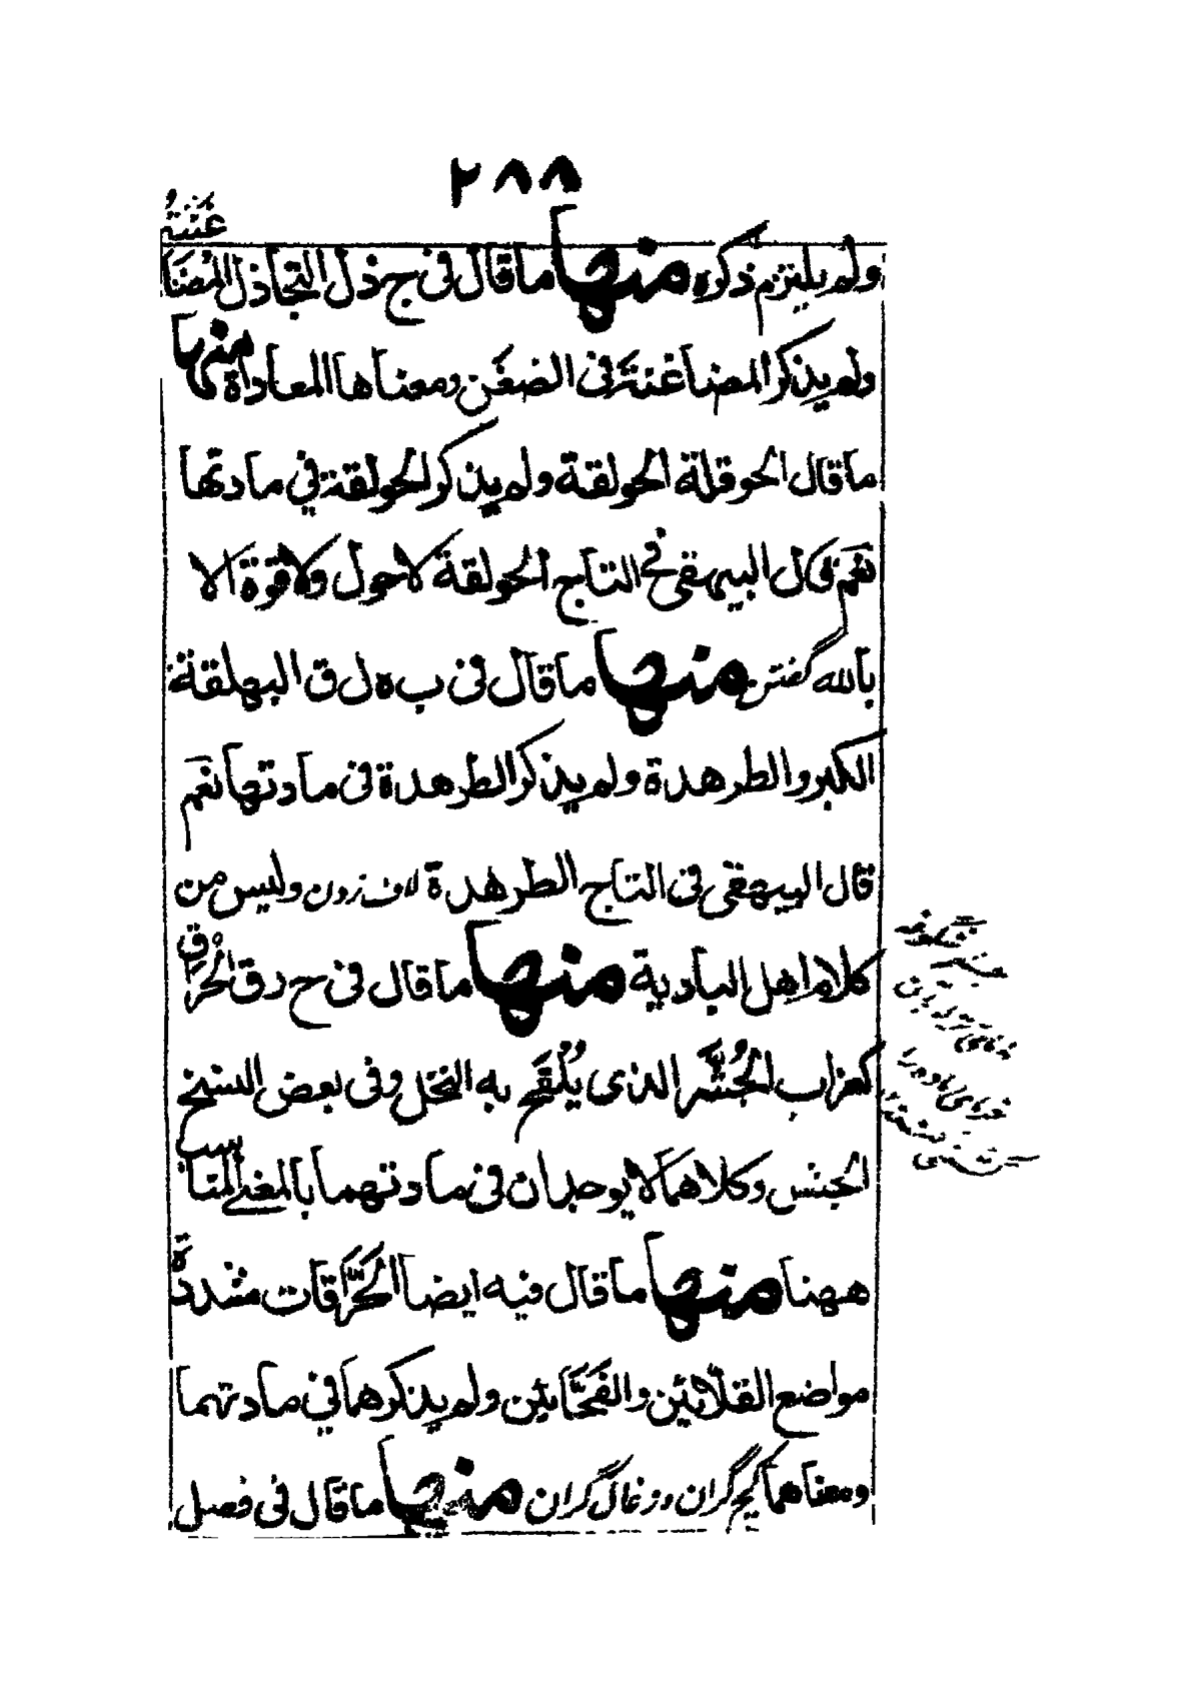 ٢٨٨
ولم يلتزم ذكره منها ما قال في ج ذ ل التجاذل المُضَاغَنَةُ
ولم يذكر المضاغنَة في الضغَن ومعناها المعاداة منها
ما قال الحوقلة الحولقة ولم يذكر الحولقة في مادتها
نعَم قال البيهقي في التاج الحولقة لا حول ولا قوة الا
بالله گفتن منها ما قال في ب ه ل ق البهلقة
الكبر والطرهدة ولم يذكر الطرهدة في مادتها نعَم
قال البيهقي في التاج الطرهدة لاف زدن وليس من
كلام اهل البادية منها ما قال في ح ر ق الحُرَاق
كعراب الجُشَّر الذي يُلْقَح به النخل وفي بعض النسخ
الجنس وكلاهما لا يوجدان في مادتهما بالمعنى المناسب
ههنا منها ما قال فيه ايضا الحَرَّاقات مشددةً
مواضع القلَّائين والفَحَّامين ولم يذكرهما في مادتهما
ومعناهما گچ گران وزغال گران منها ما قال في فصل